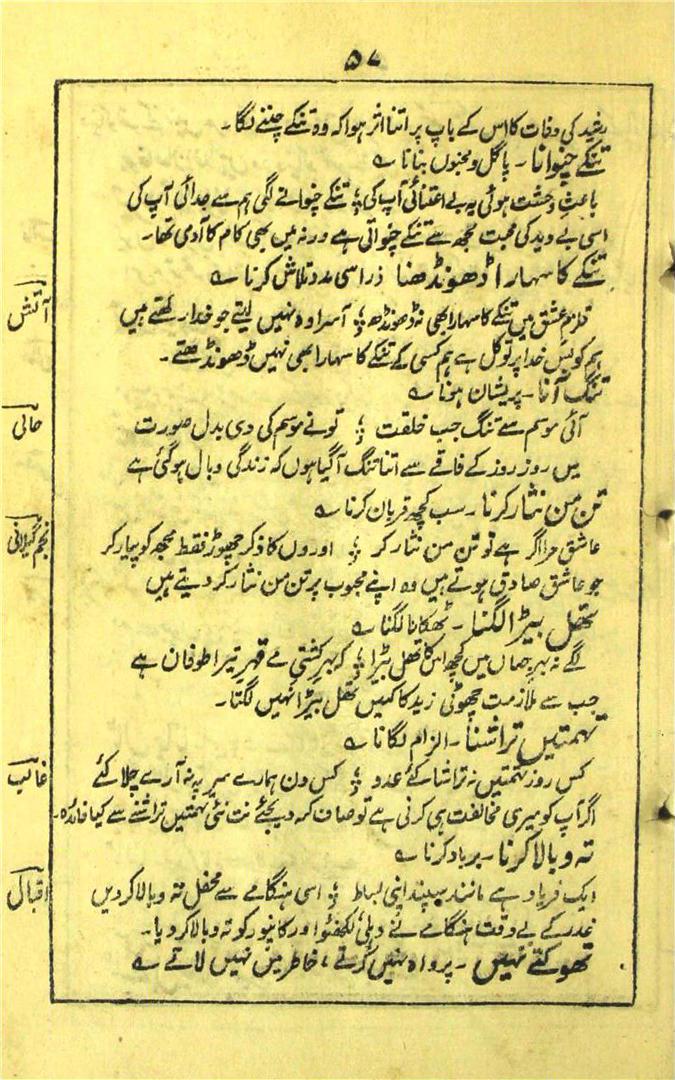 ۵۷
رشید کی وفات کا اس کے باپ پر اتنا اثر ہوا کہ وہ تنکے چننے لگا۔
تنکے چنوانا۔ پاگل و مجنوں بنانا ؎
باعثِ وحشت ہوئی یہ بے اعتنائی آپ کی ؛ تنکے چنوانے لگی ہم سے جدائی آپ کی
اسی بے دید کی محبت مجھ سے تنکے چنواتی ہے ورنہ میں بھی کام کا آدمی تھا۔
تنکے کا سہارا ڈھونڈھنا ذرا سی مدد تلاش کرنا ؎
آتش
قلزمِ عشق میں تنکے کا سہارا بھی نہ ڈھونڈھ ؛ آسرا وہ نہیں لیتے جو خدا رکھتے ہیں
ہم کو بس خدا پر توکل ہے ہم کسی کے تنکے کا سہارا بھی نہیں ڈھونڈھتے۔
تنگ آنا۔ پریشان ہونا ؎
حالی
آئی موسم سے تنگ جب خلقت ؛ تو نے موسم کی دی بدل صورت
میں روز روز کے فاقے سے اتنا تنگ آگیا ہوں کہ زندگی وبال ہوگئی ہے
تن من نثار کرنا۔ سب کچھ قربان کرنا ؎
نجم گیلانی
عاشق مرا اگر ہے تو تن من نثار کر ؛ اوروں کا ذکر چھوڑ فقط مجھ کو پیار کر
جو عاشق صادق ہوتے ہیں وہ اپنے محبوب پر تن من نثار کر دیتے ہیں
تھل بیڑا لگنا۔ ٹھکانا لگنا ؎
لگے نہ بہرِ جہاں میں کچھ اس کا تھل بیڑا ؛ کہ بہرِ کشتی مے قہر تیرا طوفان ہے
جب سے ملازمت چھوٹی زید کا کہیں تھل بیڑا نہیں لگتا۔
تہمتیں تراشنا۔ الزام لگانا ؎
غالب
کس روز تہمتیں نہ تراشا کئے عدو ؛ کس دن ہمارے سر پہ نہ آرے چلا کئے
اگر آپ کو میری مخالفت ہی کرنی ہے تو صاف کہہ دیجئے نت نئی تہمتیں تراشنے سے کیا فائدہ۔
تہ و بالا کرنا۔ برباد کرنا ؎
اقبال
ایک فریاد ہے مانند سپند اپنی بساط ؛ اسی ہنگامے سے محفل تہ و بالا کر دیں
غدر کے بے وقت ہنگامے نے دہلی لکھنؤ اور کانپور کو تہ و بالا کر دیا۔
تھوکتے نہیں۔ پرواہ نہیں کرتے، خاطر میں نہیں لاتے ؎